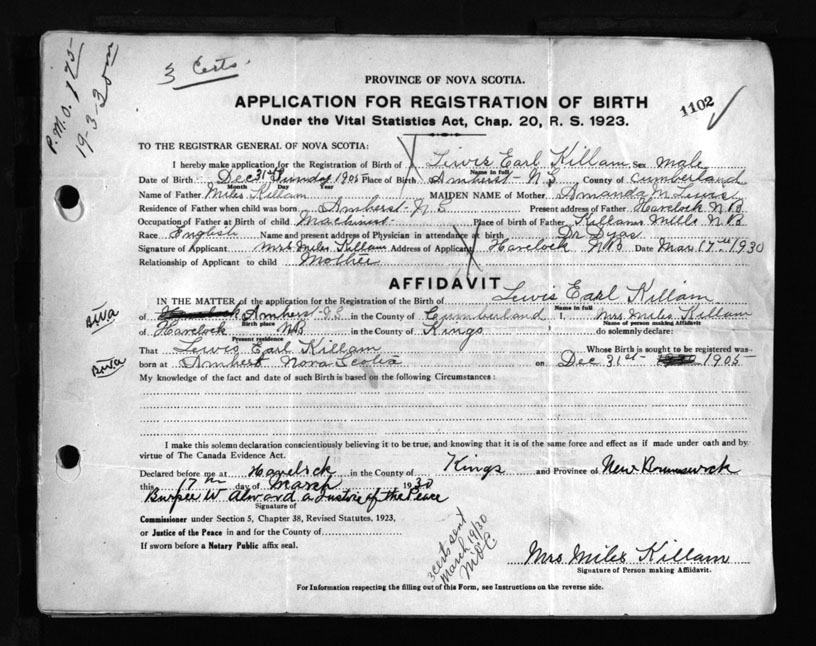 3 Certs.
P.M.O. 1.75
19-3-30
PROVINCE OF NOVA SCOTIA.
1102
APPLICATION FOR REGISTRATION OF BIRTH
Under the Vital Statistics Act, Chap. 20, R. S. 1923.
TO THE REGISTRAR GENERAL OF NOVA SCOTIA:
I hereby make application for the Registration of Birth of Lewis Earl Killam Sex male
Name in full
Date of Birth Dec 31st Sunday 1905 Place of Birth Amherst N S County of Cumberland
Month Day Year
Name of Father Miles Killam MAIDEN NAME of Mother Amanda M Lewis
Residence of Father when child was born Amherst N S Present address of Father Havelock N B
Occupation of Father at Birth of child Machinist Place of birth of Father Killams Mills N B
Race English Name and present address of Physician in attendance at birth Dr Dyas
Signature of Applicant Mrs Miles Killam Address of Applicant Havelock N B Date Mar 17th 1930
Relationship of Applicant to child Mother
AFFIDAVIT
IN THE MATTER of the application for the Registration of the Birth of Lewis Earl Killam
Name in full
of Havelock Amherst N S in the County of Cumberland I, Mrs Miles Killam
Birth place
Name of person making Affidavit
of Havelock N B in the County of Kings do solemnly declare:
Present residence
That Lewis Earl Killam Whose Birth is sought to be registered was
born at Amherst Nova Scotia on Dec 31st 1905
My knowledge of the fact and date of such Birth is based on the following Circumstances:
I make this solemn declaration conscientiously believing it to be true, and knowing that it is of the same force and effect as if made under oath and by
virtue of The Canada Evidence Act.
Declared before me at Havelock in the County of Kings and Province of New Brunswick
this 17th day of March 1930
Burpee W Alward a Justice of the Peace
Signature of
Commissioner under Section 5, Chapter 38, Revised Statutes, 1923,
or Justice of the Peace in and for the County of
If sworn before a Notary Public affix seal.
3 certs sent
March 19/30
Mrs Miles Killam
Signature of Person making Affidavit.
For Information respecting the filling out of this Form, see Instructions on the reverse side.